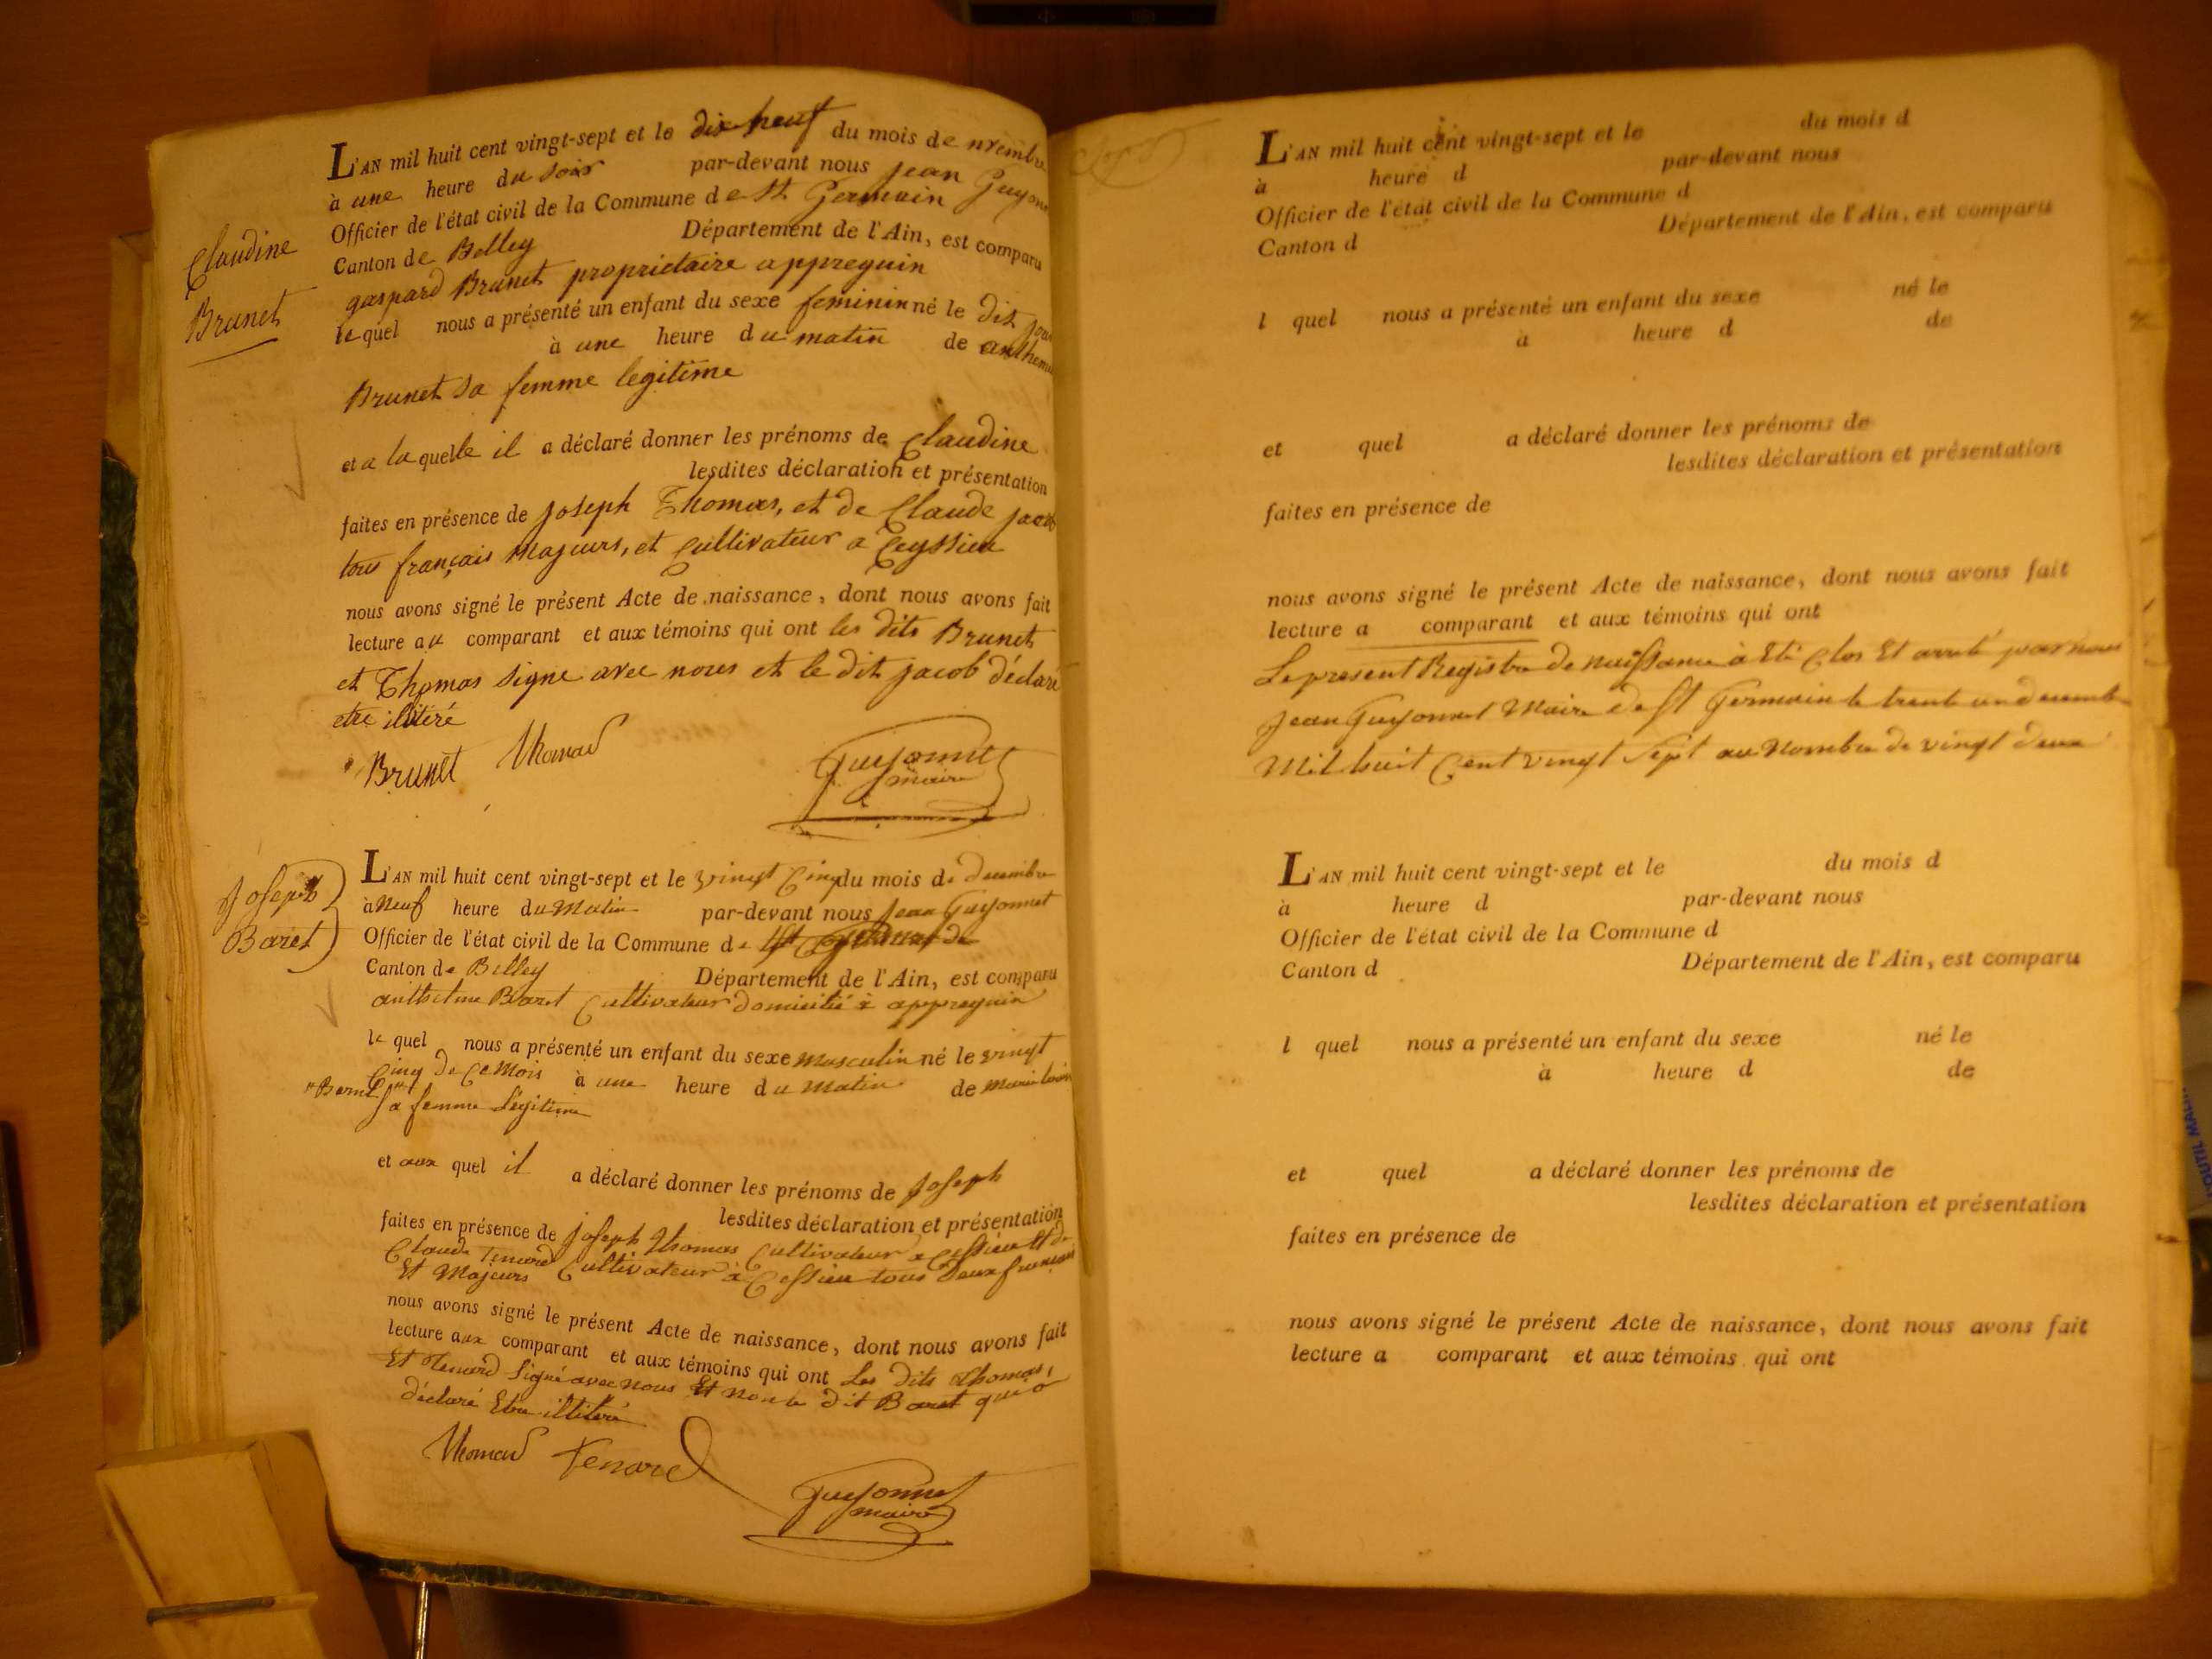 Claudine
Brunet
L'AN mil huit cent vingt-sept et le dix neuf du mois de nvembre
à une heure du soir par-devant nous jean Guyonnet
Officier de l'état civil de la Commune de St Germain
Canton de Belley Département de l'Ain, est comparu
gaspard Brunet proprietaire appreguin
le quel nous a présenté un enfant du sexe feminin né le dit jour
à une heure du matin de
Brunet sa femme legitime
et a la quelle il a déclaré donner les prénoms de Claudine
lesdites déclaration et présentation
faites en présence de joseph Thomas, et de Claude jacob
tous français majeurs, et Cultivateur a Ceyssieu
nous avons signé le présent Acte de naissance, dont nous avons fait
lecture au comparant et aux témoins qui ont les dits Brunet
et Thomas signe avec nous et le dit jacob déclaré
etre illitéré
Brunet Thomas
Guyonnet
maire
Joseph
Baret
L'AN mil huit cent vingt-sept et le vingt Cinq du mois de decembre
à Neuf heure du Matin par-devant nous Jean Guyonnet
Officier de l'état civil de la Commune de St
Canton de Belley Département de l'Ain, est comparu
anthelme Baret Cultivateur domicilié à appreguin
le quel nous a présenté un enfant du sexe masculin né le vingt
Cinq de Ce Mois à une heure du Matin de Marie
sa femme Légitime
et aux quel il a déclaré donner les prénoms de Joseph
lesdites déclaration et présentation
faites en présence de Joseph Thomas Cultivateur a Cessieu Et de
Claude Tenard Cultivateur à Cessieu tous deux français
Et Majeurs
nous avons signé le présent Acte de naissance, dont nous avons fait
lecture aux comparant et aux témoins qui ont Les dits Thomas,
Et Tenard Signé avec nous Et non le dit Baret qui a
déclaré Etre illitéré
Thomas Tenard
Guyonnet
maire
L'AN mil huit cent vingt-sept et le du mois d
à heure d par-devant nous
Officier de l'état civil de la Commune d
Canton d Département de l'Ain, est comparu
l quel nous a présenté un enfant du sexe né le
à heure d de
et quel a déclaré donner les prénoms de
lesdites déclaration et présentation
faites en présence de
nous avons signé le présent Acte de naissance, dont nous avons fait
lecture a comparant et aux témoins qui ont
Le present Registre de naissance à Eté Clos Et arreté par nous
Jean Guyonnet Maire de St Germain le trente un decembre
Mil huit Cent vingt Sept au Nombre de vingt deux
L'AN mil huit cent vingt-sept et le du mois d
à heure d par-devant nous
Officier de l'état civil de la Commune d
Canton d Département de l'Ain, est comparu
l quel nous a présenté un enfant du sexe né le
à heure d de
et quel a déclaré donner les prénoms de
lesdites déclaration et présentation
faites en présence de
nous avons signé le présent Acte de naissance, dont nous avons fait
lecture a comparant et aux témoins qui ont